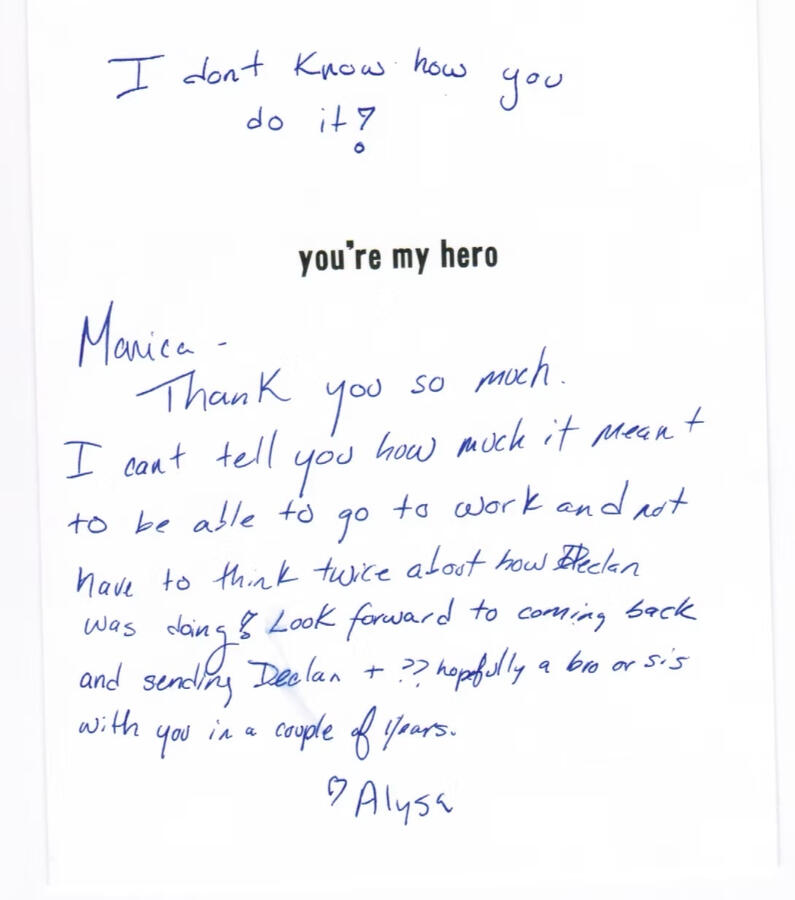 I dont know how you
do it?
you're my hero
Monica -
Thank you so much.
I cant tell you how much it meant
to be able to go to work and not
have to think twice about how Declan
was doing! Look forward to coming back
and sending Declan + ?? hopefully a bro or sis
with you in a couple of years.
♡ Alysa